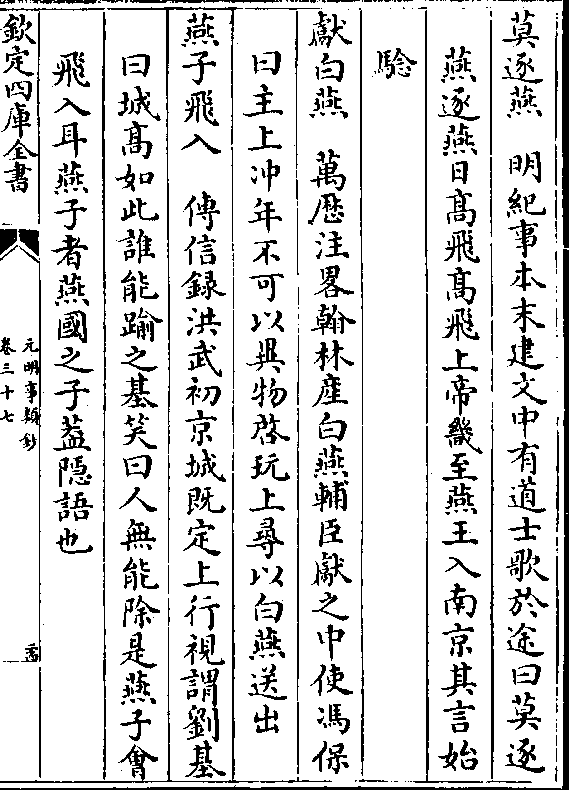 莫逐燕　明紀事本末建文中有道士歌於途曰莫逐
燕逐燕日髙飛髙飛上帝畿至燕王入南京其言始
騐
獻白燕　萬厯注畧翰林産白燕輔臣獻之中使馮保
曰主上沖年不可以異物啓玩上尋以白燕送出
燕子飛入　傳信録洪武初京城既定上行視謂劉基
曰城髙如此誰能踰之基笑曰人無能除是燕子會
飛入耳燕子者燕國之子葢隠語也
欽定四庫全書
元明事類鈔
卷三十七